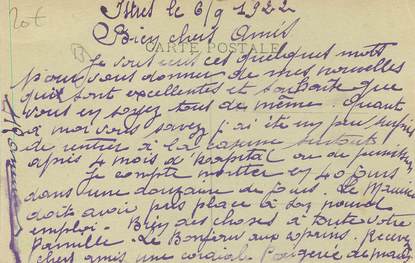 20f
Istres le 6/9 1922
Bien chers Amis
CARTE POSTALE
Je vous ces quelques mots
pour vous donner de mes nouvelles
qui sont excellentes et souhaite que
vous en soyez tous de même. Quant
à moi vous savez j'ai été un peu surpris
de rentrer à la caserne surtout
après 4 mois d'hopital ou de
Je compte monter en 40 jours
dans une douzaine de jours. Le Maurice
doit avoir pris place à son nouvel
emploi. Bien des choses à toute votre
famille. Le Bonjour aux copains. Recevez
chers amis une cordiale Poignée de main